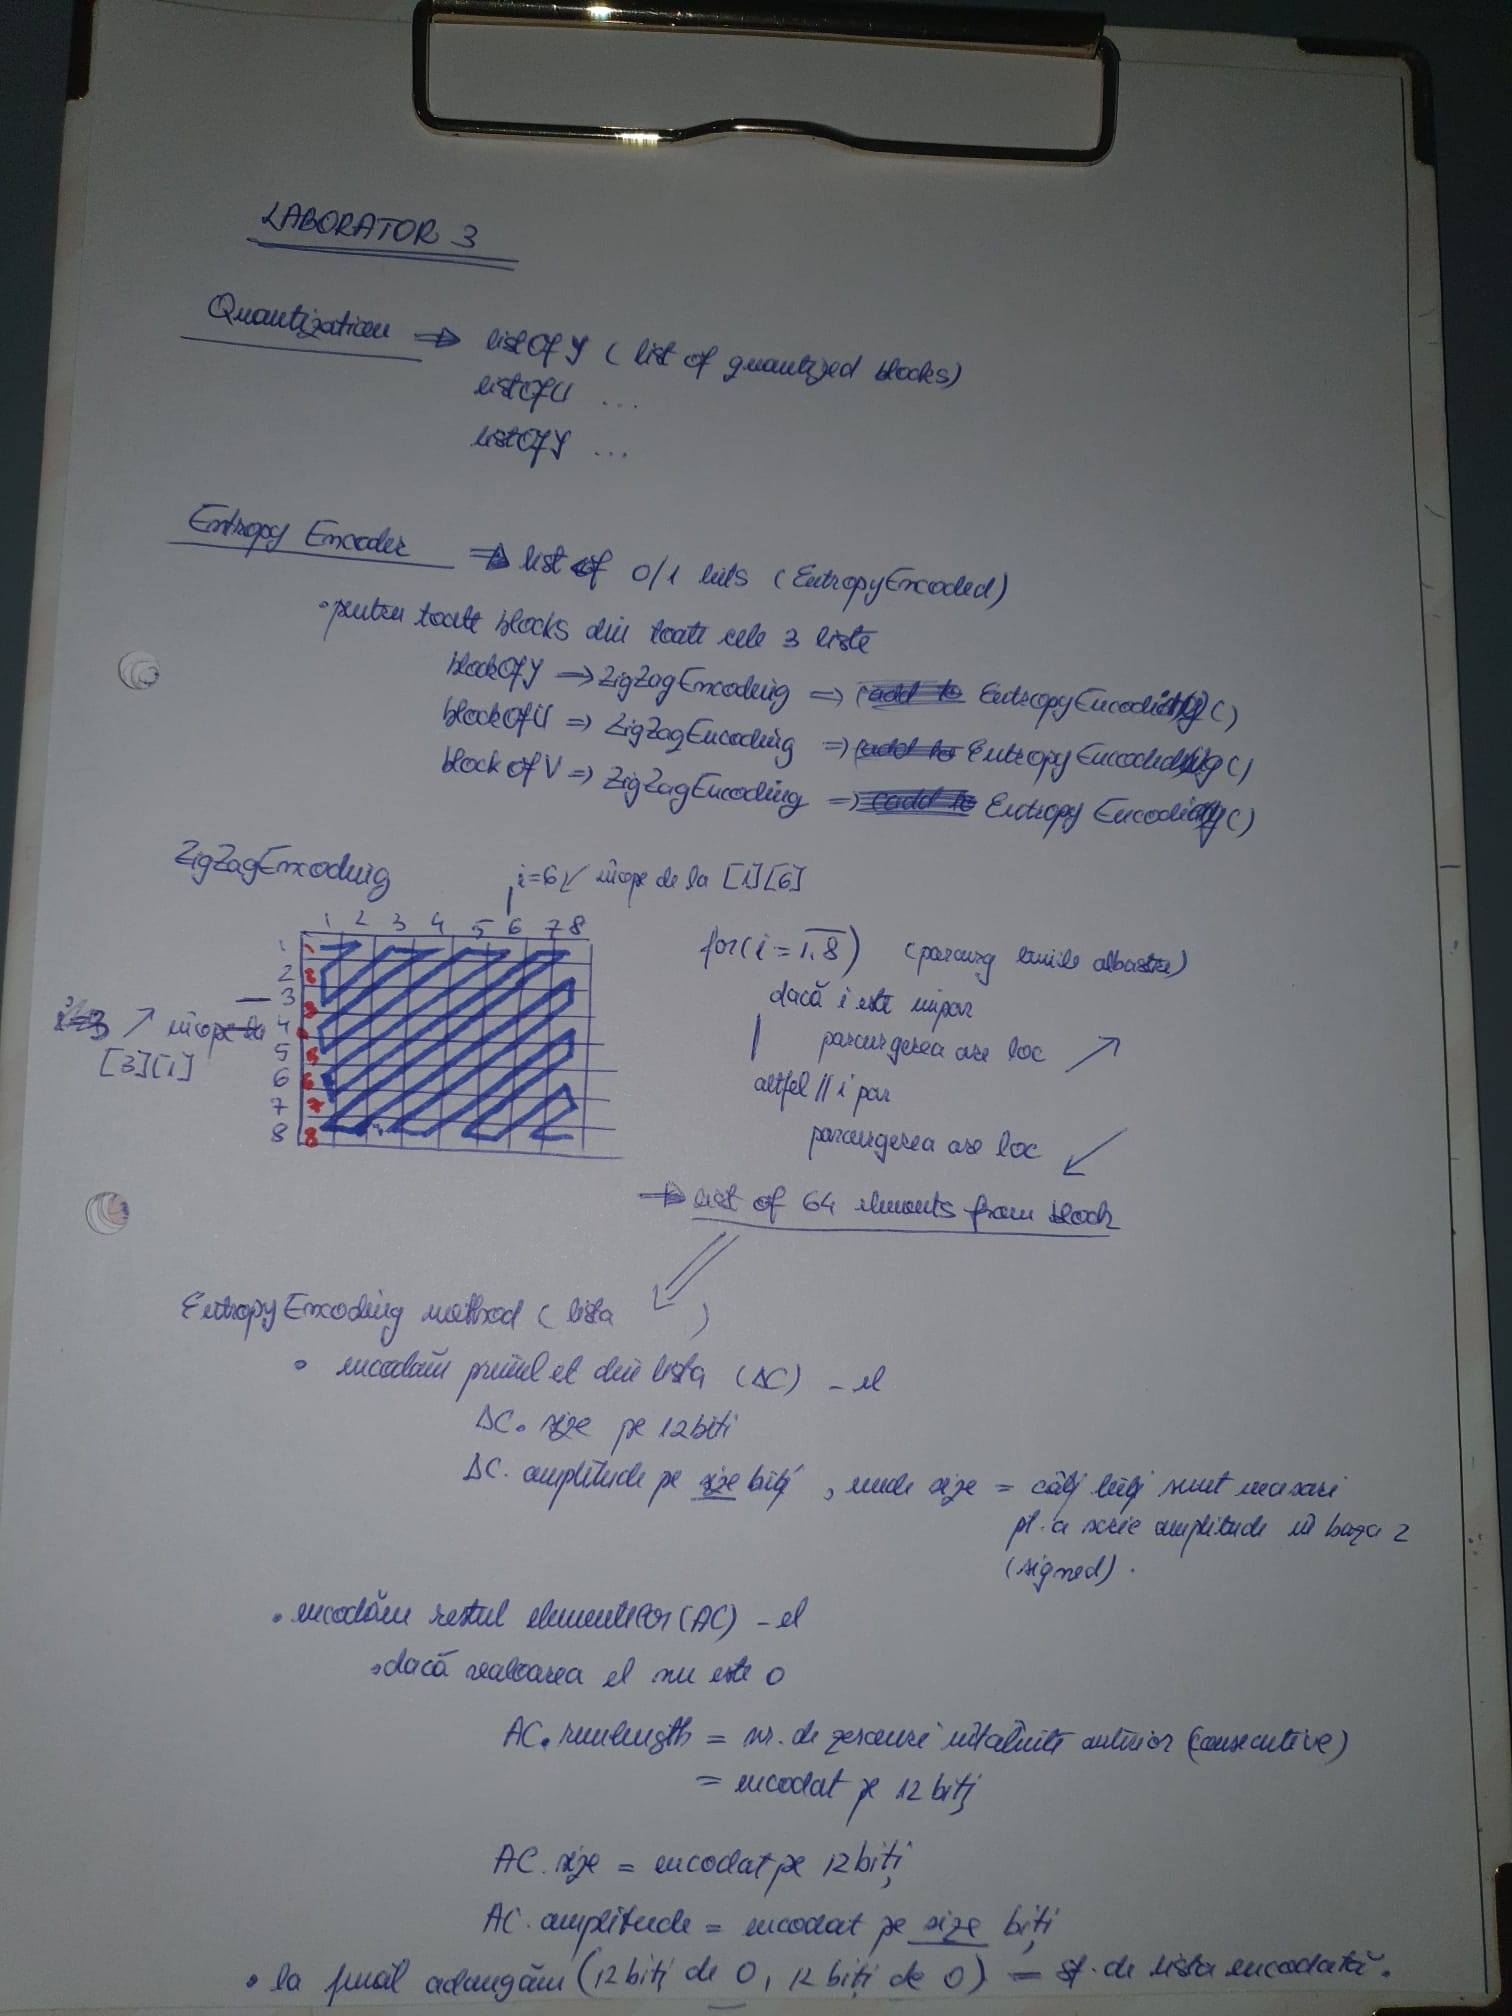 LABORATOR 3
Quantization => listOfY (list of quantized blocks)
listOfU ...
listOfY ...
Entropy Encoder => list of 0/1 bits (EntropyEncoded)
• pentru toate blocks din toate cele 3 liste
blockOfY => ZigZagEncoding => EntropyEncoding()
blockOfU => ZigZagEncoding => EntropyEncoding()
block of V => ZigZagEncoding => Entropy Encoding()
ZigZagEncoding
i=6 ↙ începe de la [1][6]
1 2 3 4 5 6 7 8
1 1
2 2
3 3
4 4
5 5
6 6
7 7
8 8
i=3 ↗ începe la
[3][1]
for(i = 1,8) (parcurg liniile albastre)
dacă i este impar
parcurgerea are loc ↗
altfel // i par
parcurgerea are loc ↙
=> list of 64 elements from block
EntropyEncoding method (lista )
• encodăm primul el din lista (DC) - el
DC. size pe 12 biti
DC. amplitude pe size biți, unde size = câți biți sunt necesari
pt. a scrie amplitude în baza 2
(signed).
• encodăm restul elementelor (AC) - el
• dacă valoarea el nu este 0
AC. runlength = nr. de zerouri întâlnite anterior (consecutive)
= encodat pe 12 biți
AC. size = encodat pe 12 biți
AC. amplitude = encodat pe size biți
• la final adaugăm (12 biți de 0, 12 biți de 0) = sf. de lista encodată.